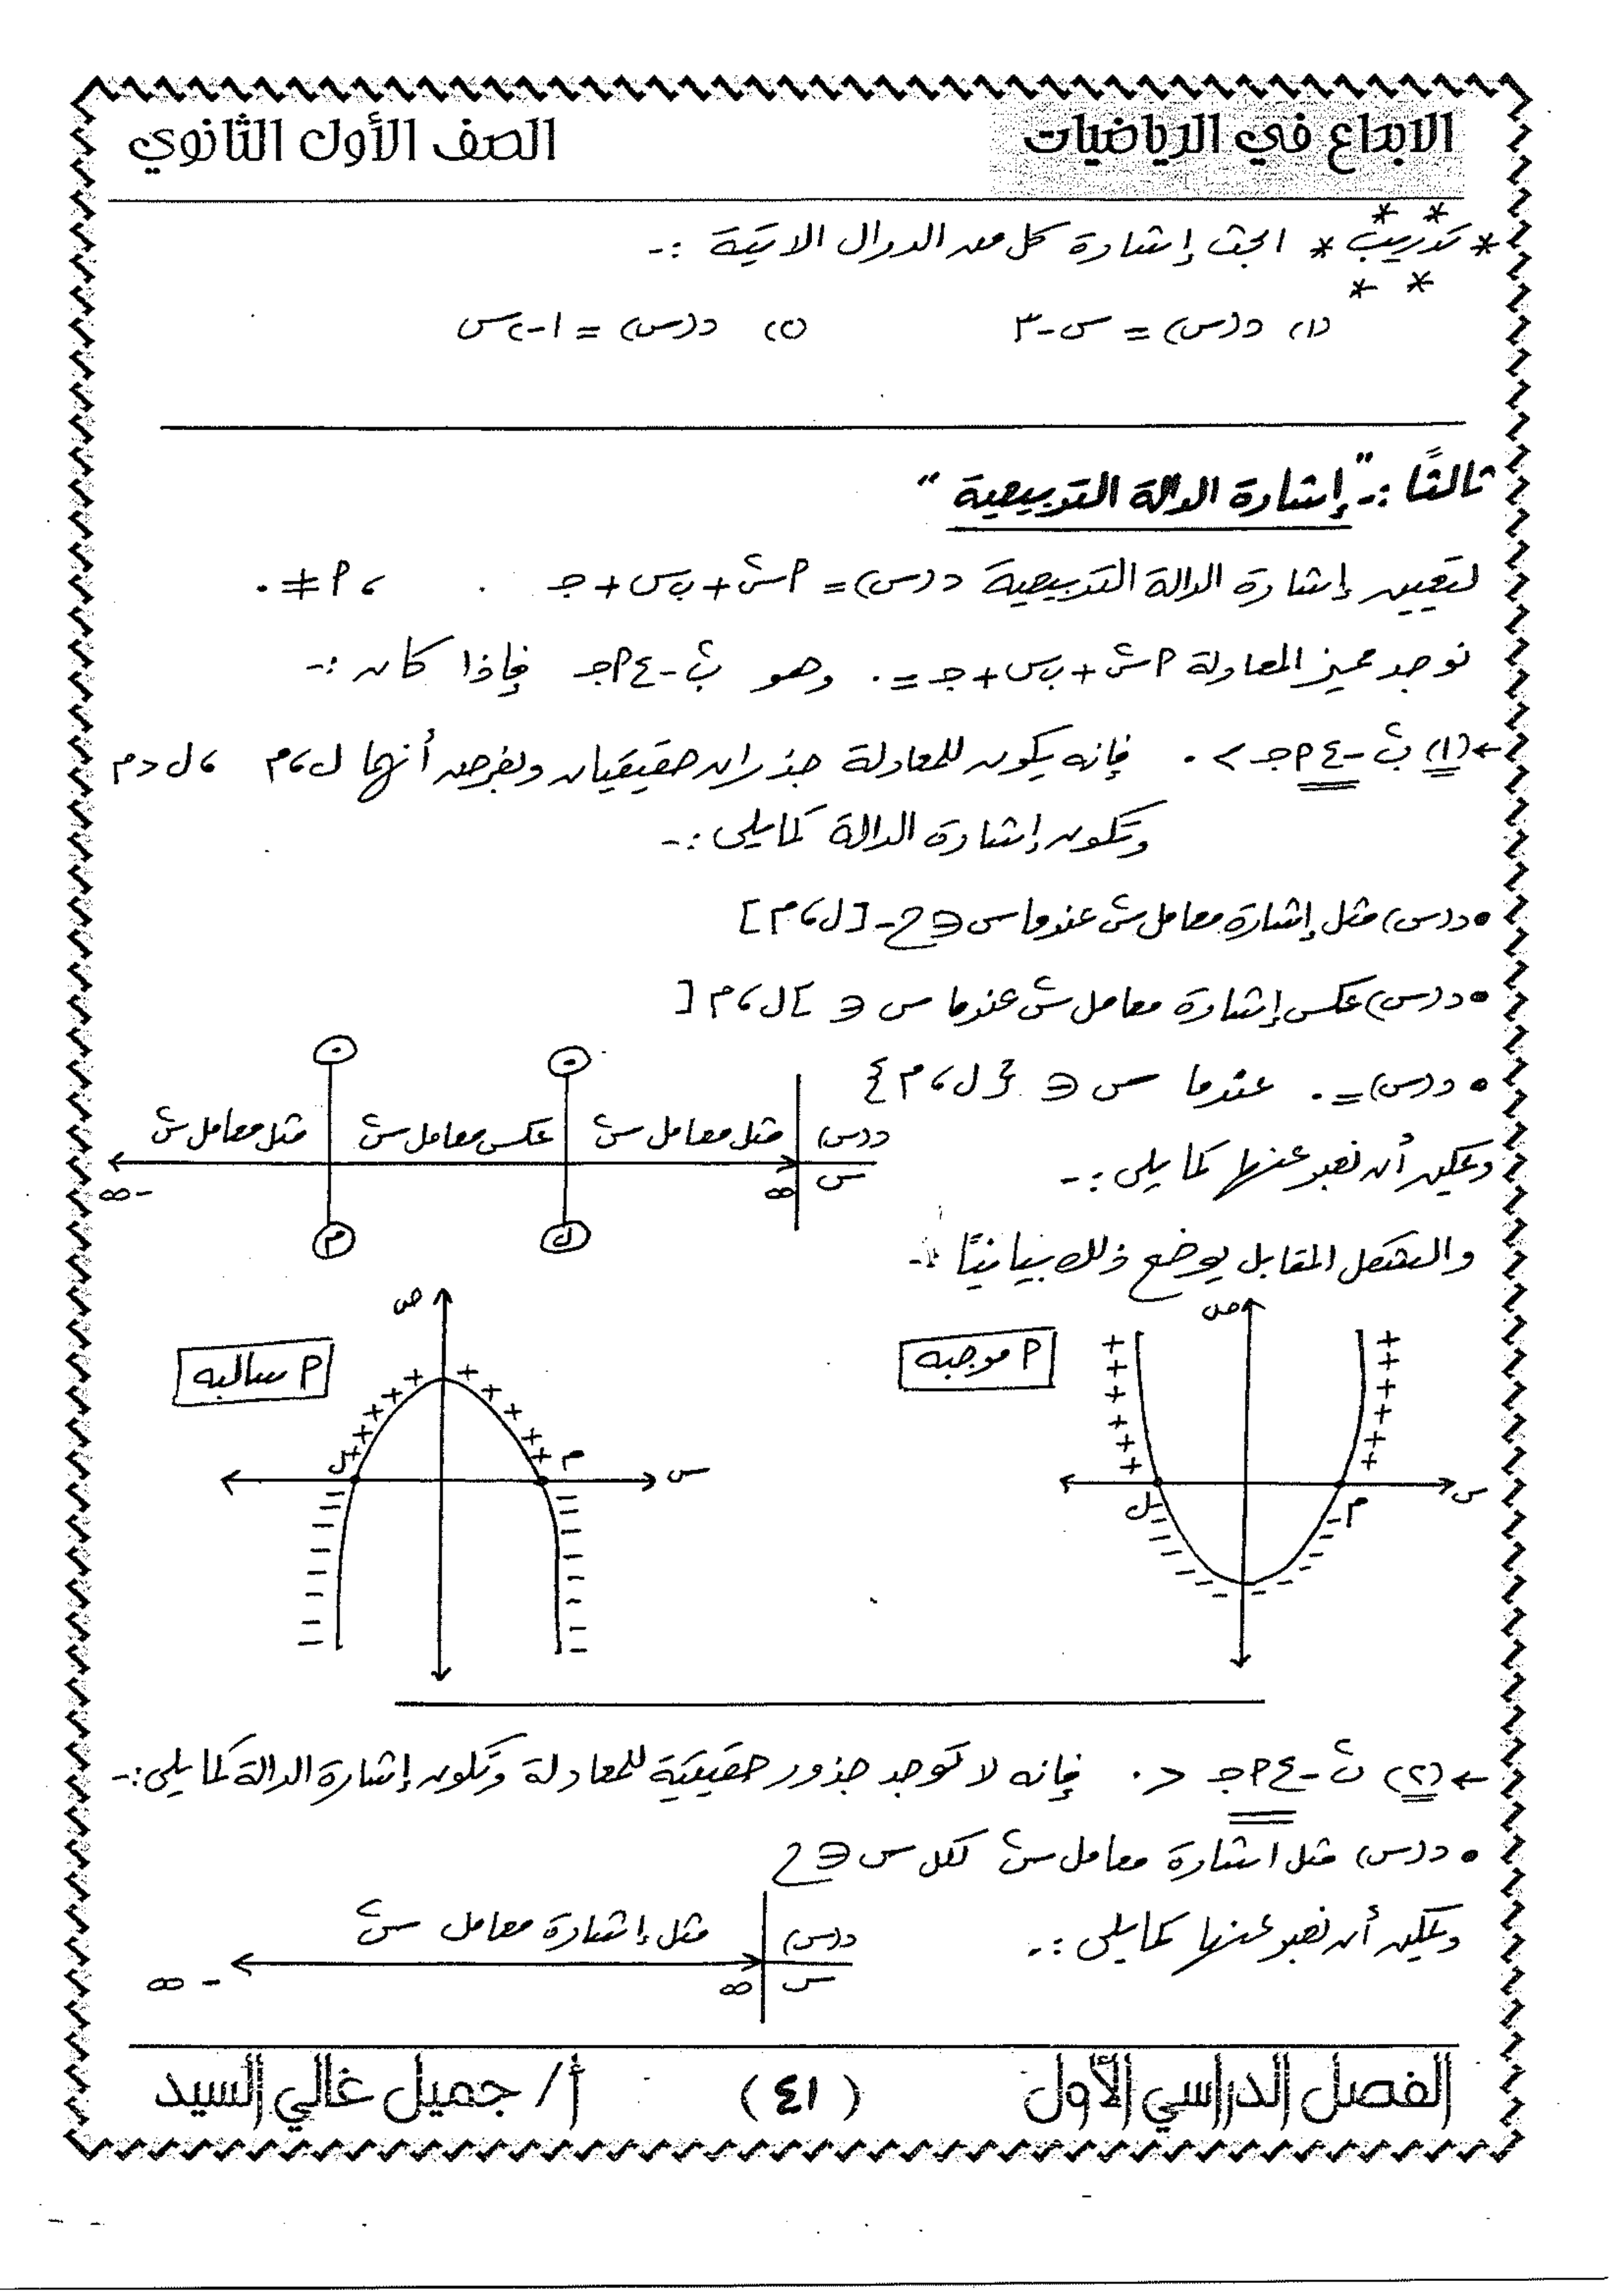 الابداع في الرياضيات
الصف الأول الثانوي
* تدريب * ابحث إشارة كل من الدوال الاتية :-
(١) د(س) = س - ٣
(٢) د(س) = ١ - ٢س
ثالثًا :- "إشارة الدالة التربيعية"
لتعيين إشارة الدالة التربيعية د(س) = أس² + ب س + جـ ، أ ≠ ٠
نوجد مميز المعادلة أس² + ب س + جـ = ٠ وهو ب² - ٤أجـ فإذا كان :-
← (١) ب² - ٤أجـ > ٠ فإنه يكون للمعادلة جذران حقيقيان وبفرض أنهما ل ، م ، ل < م
وتكون إشارة الدالة كما يلى :-
• د(س) مثل إشارة معامل س² عندما س ∈ ح - [ل ، م]
• د(س) عكس إشارة معامل س² عندما س ∈ ]ل ، م[
• د(س) = ٠ عندما س ∈ {ل ، م}
ويمكن أن نعبر عنها كما يلى :-
٠ ٠
د(س) مثل معامل س² عكس معامل س² مثل معامل س²
س ∞ -∞
ل م
والشكل المقابل يوضح ذلك بيانيًا :-
ص
أ موجبه
ل م س
ص
أ سالبه
ل م س
← (٢) ب² - ٤أجـ < ٠ فإنه لا توجد جذور حقيقية للمعادلة وتكون إشارة الدالة كما يلى :-
• د(س) مثل اشارة معامل س² لكل س ∈ ح
ويمكن أن نعبر عنها كما يلى :-
د(س) مثل إشارة معامل س²
س ∞ -∞
الفصل الدراسي الأول
( ٤١ )
أ / جميل غالي السيد